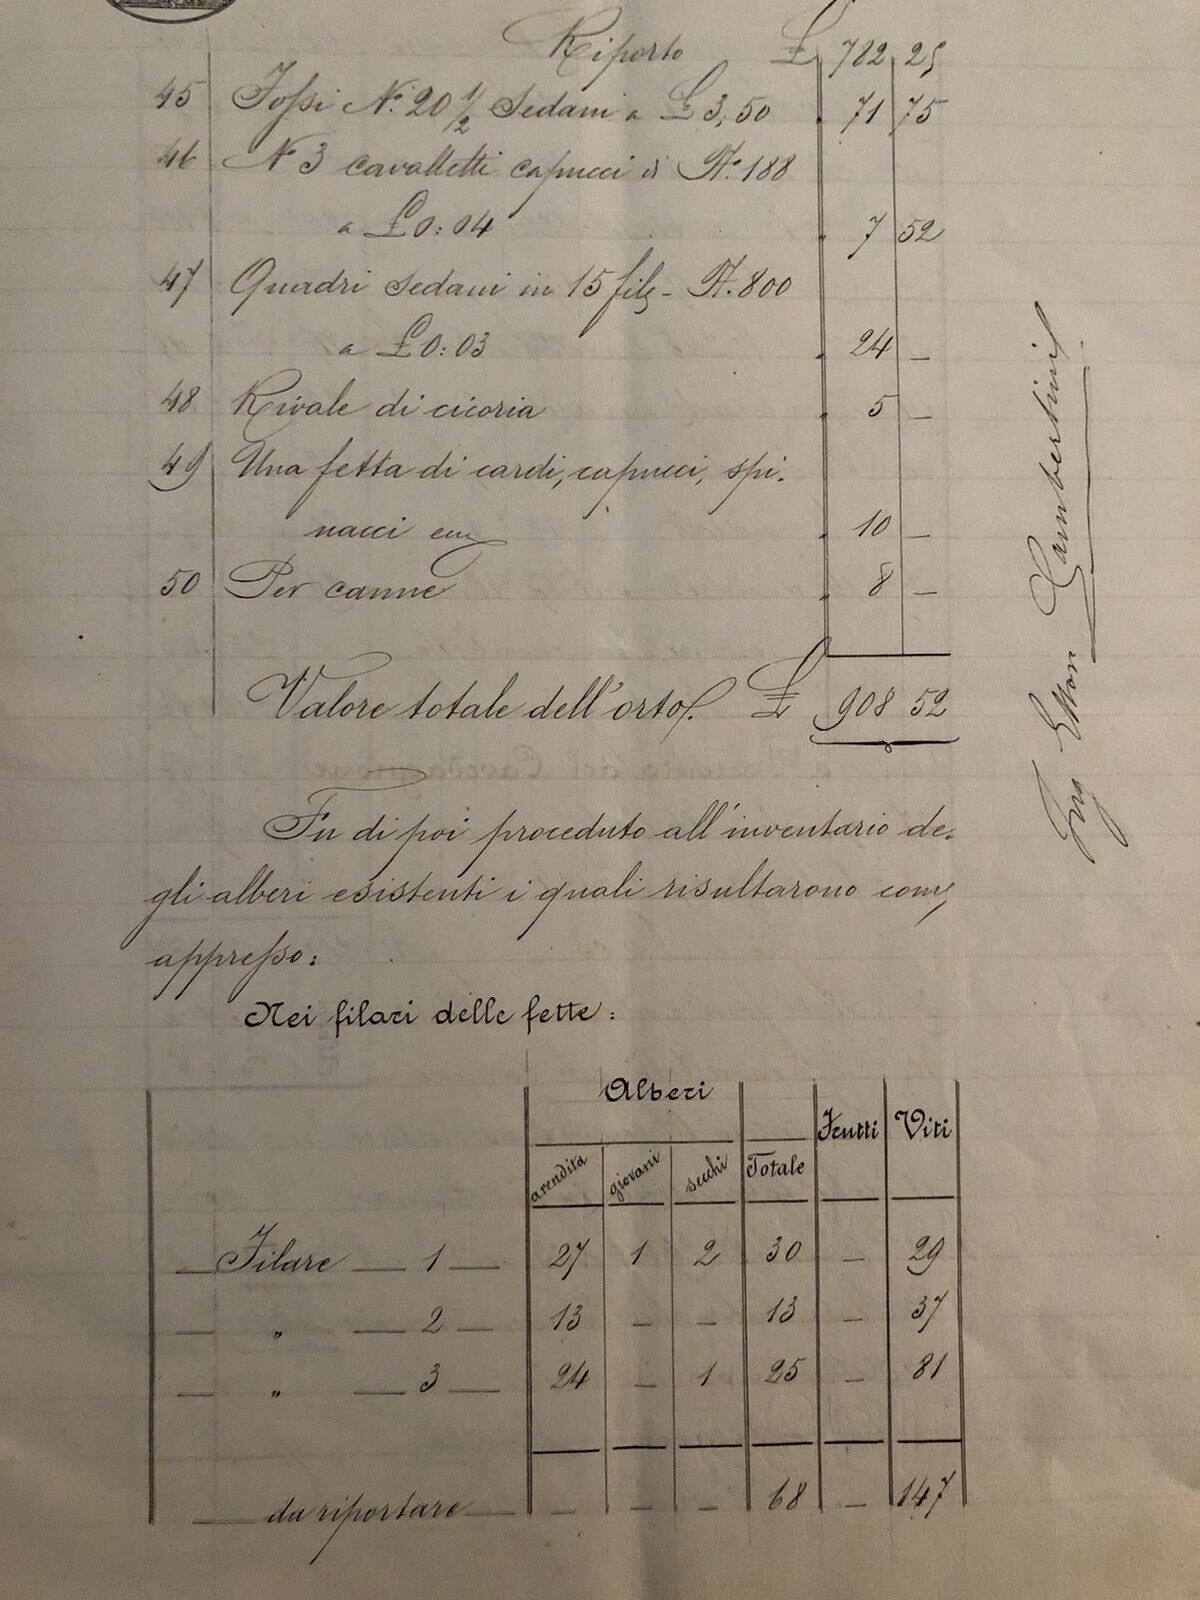 Riporto £ 782 25
45 Fossi N.° 20 1/2 Sedani a £ 3,50 " 71 75
46 N° 3 cavalletti capucci N.° 188
a £ 0:04 " 7 52
47 Quadri sedani in 15 file - N. 800
a £ 0:03 " 24 —
48 Rivale di cicoria " 5 —
49 Una fetta di cardi, capucci, spi-
nacci ecc " 10 —
50 Per canne " 8 —
Valore totale dell'orto. £ 908 52
Fu di poi proceduto all'inventario de-
gli alberi esistenti i quali risultarono come
appresso:
Nei filari delle fette:
Alberi Frutti Viti
arendita giovani secchi Totale
— Filare — 1 — 27 1 2 30 — 29
— " — 2 — 13 — — 13 — 37
— " — 3 — 24 — 1 25 — 81
— da riportare — — — — 68 — 147
Ing Ettore Lambertini